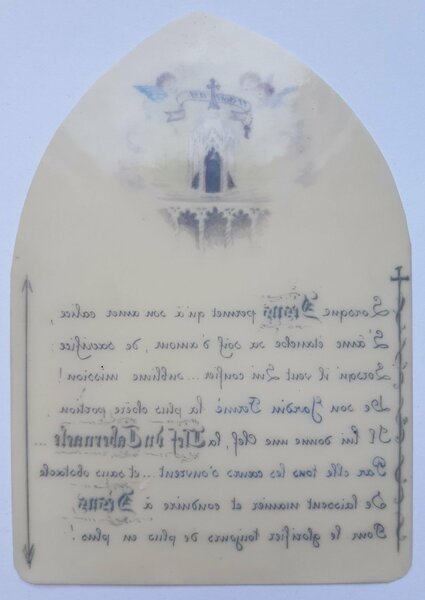 Lorsque Jésus permet qu'à son amer calice,
L'âme étanche sa soif d'amour, de sacrifice
Lorsqu'il veut Lui confier ... sublime mission!
De son Jardin Fermé la plus chère portion
Il lui donne une Clef, la Clef du Tabernacle ...
Par elle tous les cœurs s'ouvrent ... et sans obstacle
Se laissent manier et conduire à Jésus
Pour le glorifier toujours de plus en plus!